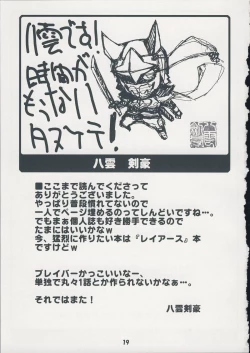 八雲です!
時間が
もうない!
タスケテ!
八雲 剣豪
■ここまで読んでくださって
ありがとうございました。
やっぱり普段慣れてないので
一人でページ埋めるのってしんどいですね…。
でもまぁ個人誌も好き勝手できるので
たまにはいいかなw
今、猛烈に作りたい本は『レイアース』本
ですけどw
ブレイバーかっこいいなー、
単独で丸々1話とか作られないかなぁ…。
それではまた!
八雲剣豪
19